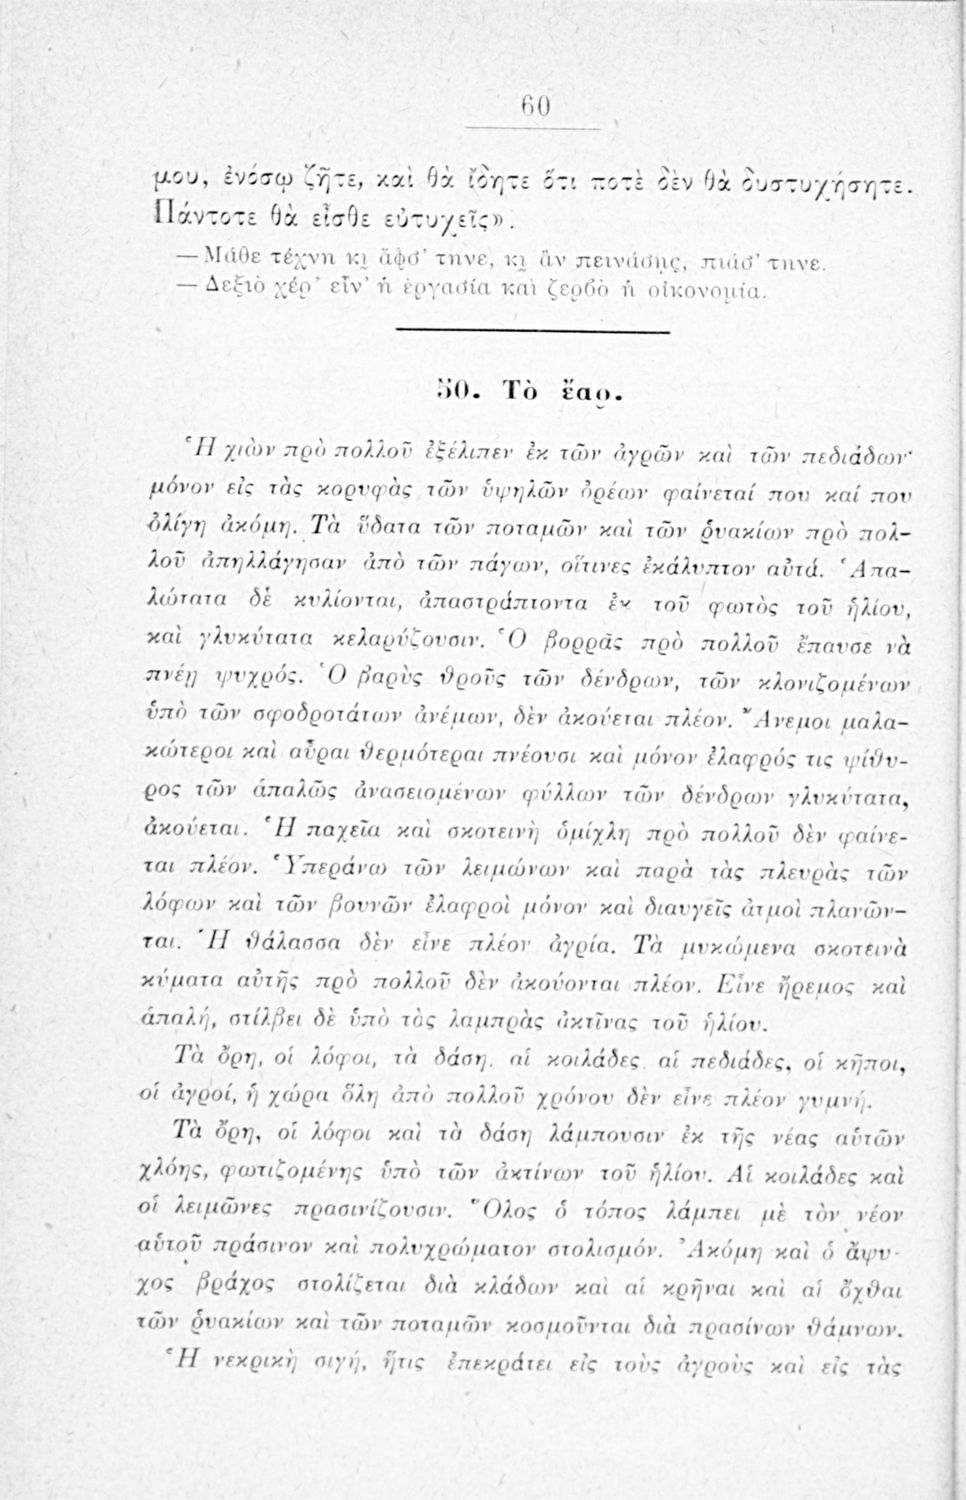 60
μου, ἐνόσῳ ζῆτε, καὶ θὰ ἴδητε ὅτι ποτὲ δὲν θὰ δυστυχήσητε.
Πάντοτε θὰ εἶσθε εὐτυχεῖς».
— Μάθε τέχνη κι ἄφσ' τηνε, κι ἂν πεινάσῃς, πιάσ' τηνε.
— Δεξιὸ χέρ' εἶν' ἡ ἐργασία καὶ ζερβὸ ἡ οἰκονομία.
50. Τὸ ἔαρ.
Ἡ χιὼν πρὸ πολλοῦ ἐξέλιπεν ἐκ τῶν ἀγρῶν καὶ τῶν πεδιάδων·
μόνον εἰς τὰς κορυφὰς τῶν ὑψηλῶν ὀρέων φαίνεταί που καί που
ὀλίγη ἀκόμη. Τὰ ὕδατα τῶν ποταμῶν καὶ τῶν ῥυακίων πρὸ πολ-
λοῦ ἀπηλλάγησαν ἀπὸ τῶν πάγων, οἵτινες ἐκάλυπτον αὐτά. Ἁπα-
λώτατα δὲ κυλίονται, ἀπαστράπτοντα ἐκ τοῦ φωτὸς τοῦ ἡλίου,
καὶ γλυκύτατα κελαρύζουσιν. Ὁ βορρᾶς πρὸ πολλοῦ ἔπαυσε νὰ
πνέῃ ψυχρός. Ὁ βαρὺς θροῦς τῶν δένδρων, τῶν κλονιζομένων
ὑπὸ τῶν σφοδροτάτων ἀνέμων, δὲν ἀκούεται πλέον. Ἄνεμοι μαλα-
κώτεροι καὶ αὖραι θερμότεραι πνέουσι καὶ μόνον ἐλαφρός τις ψίθυ-
ρος τῶν ἁπαλῶς ἀνασειομένων φύλλων τῶν δένδρων γλυκύτατα,
ἀκούεται. Ἡ παχεῖα καὶ σκοτεινὴ ὁμίχλη πρὸ πολλοῦ δὲν φαίνε-
ται πλέον. Ὑπεράνω τῶν λειμώνων καὶ παρὰ τὰς πλευρὰς τῶν
λόφων καὶ τῶν βουνῶν ἐλαφροὶ μόνον καὶ διαυγεῖς ἀτμοὶ πλανῶν-
ται. Ἡ θάλασσα δὲν εἶνε πλέον ἀγρία. Τὰ μυκώμενα σκοτεινὰ
κύματα αὐτῆς πρὸ πολλοῦ δὲν ἀκούονται πλέον. Εἶνε ἤρεμος καὶ
ἁπαλή, στίλβει δὲ ὑπὸ τὰς λαμπρὰς ἀκτῖνας τοῦ ἡλίου.
Τὰ ὄρη, οἱ λόφοι, τὰ δάση, αἱ κοιλάδες αἱ πεδιάδες, οἱ κῆποι,
οἱ ἀγροί, ἡ χώρα ὅλη ἀπὸ πολλοῦ χρόνου δὲν εἶνε πλέον γυμνή.
Τὰ ὄρη, οἱ λόφοι καὶ τὰ δάση λάμπουσιν ἐκ τῆς νέας αὑτῶν
χλόης, φωτιζομένης ὑπὸ τῶν ἀκτίνων τοῦ ἡλίου. Αἱ κοιλάδες καὶ
οἱ λειμῶνες πρασινίζουσιν. Ὅλος ὁ τόπος λάμπει μὲ τὸν νέον
αὑτοῦ πράσινον καὶ πολυχρώματον στολισμόν. Ἀκόμη καὶ ὁ ἄψυ-
χος βράχος στολίζεται διὰ κλάδων καὶ αἱ κρῆναι καὶ αἱ ὄχθαι
τῶν ῥυακίων καὶ τῶν ποταμῶν κοσμοῦνται διὰ πρασίνων θάμνων.
Ἡ νεκρικὴ σιγή, ἥτις ἐπεκράτει εἰς τοὺς ἀγροὺς καὶ εἰς τὰς